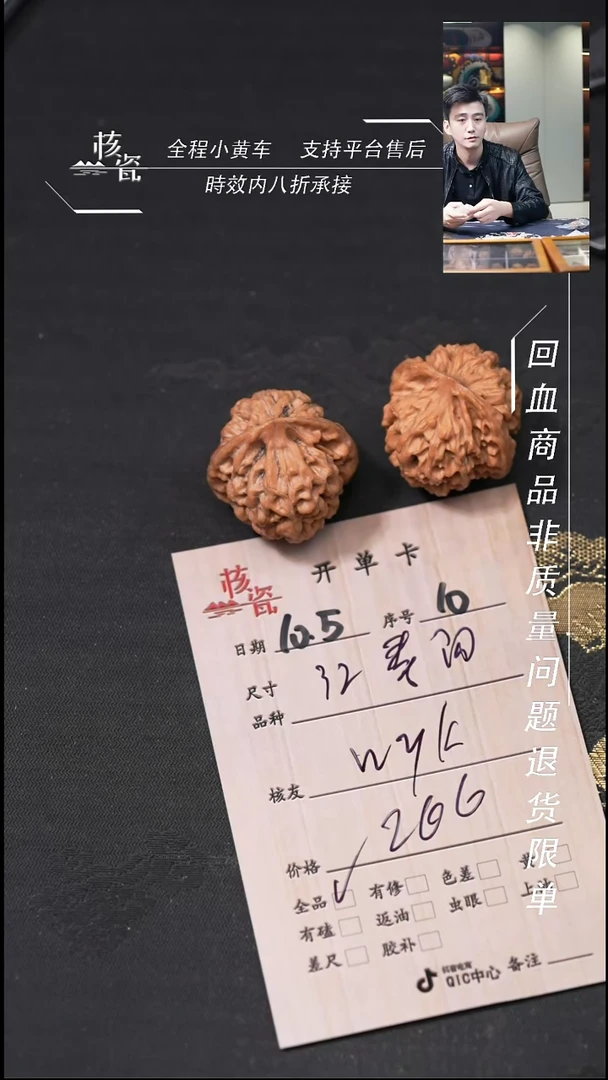 核瓷
全程小黄车 支持平台售后
時效内八折承接
回血商品非质量问题退货限单
核瓷
开单卡
日期 10.5 序号 10
尺寸 32
品种
核友 wyk
价格 266
全品 ✓ 有修 色差
有磕 返油 虫眼 上油
差尺 胶补
抖音电商
QIC中心 备注